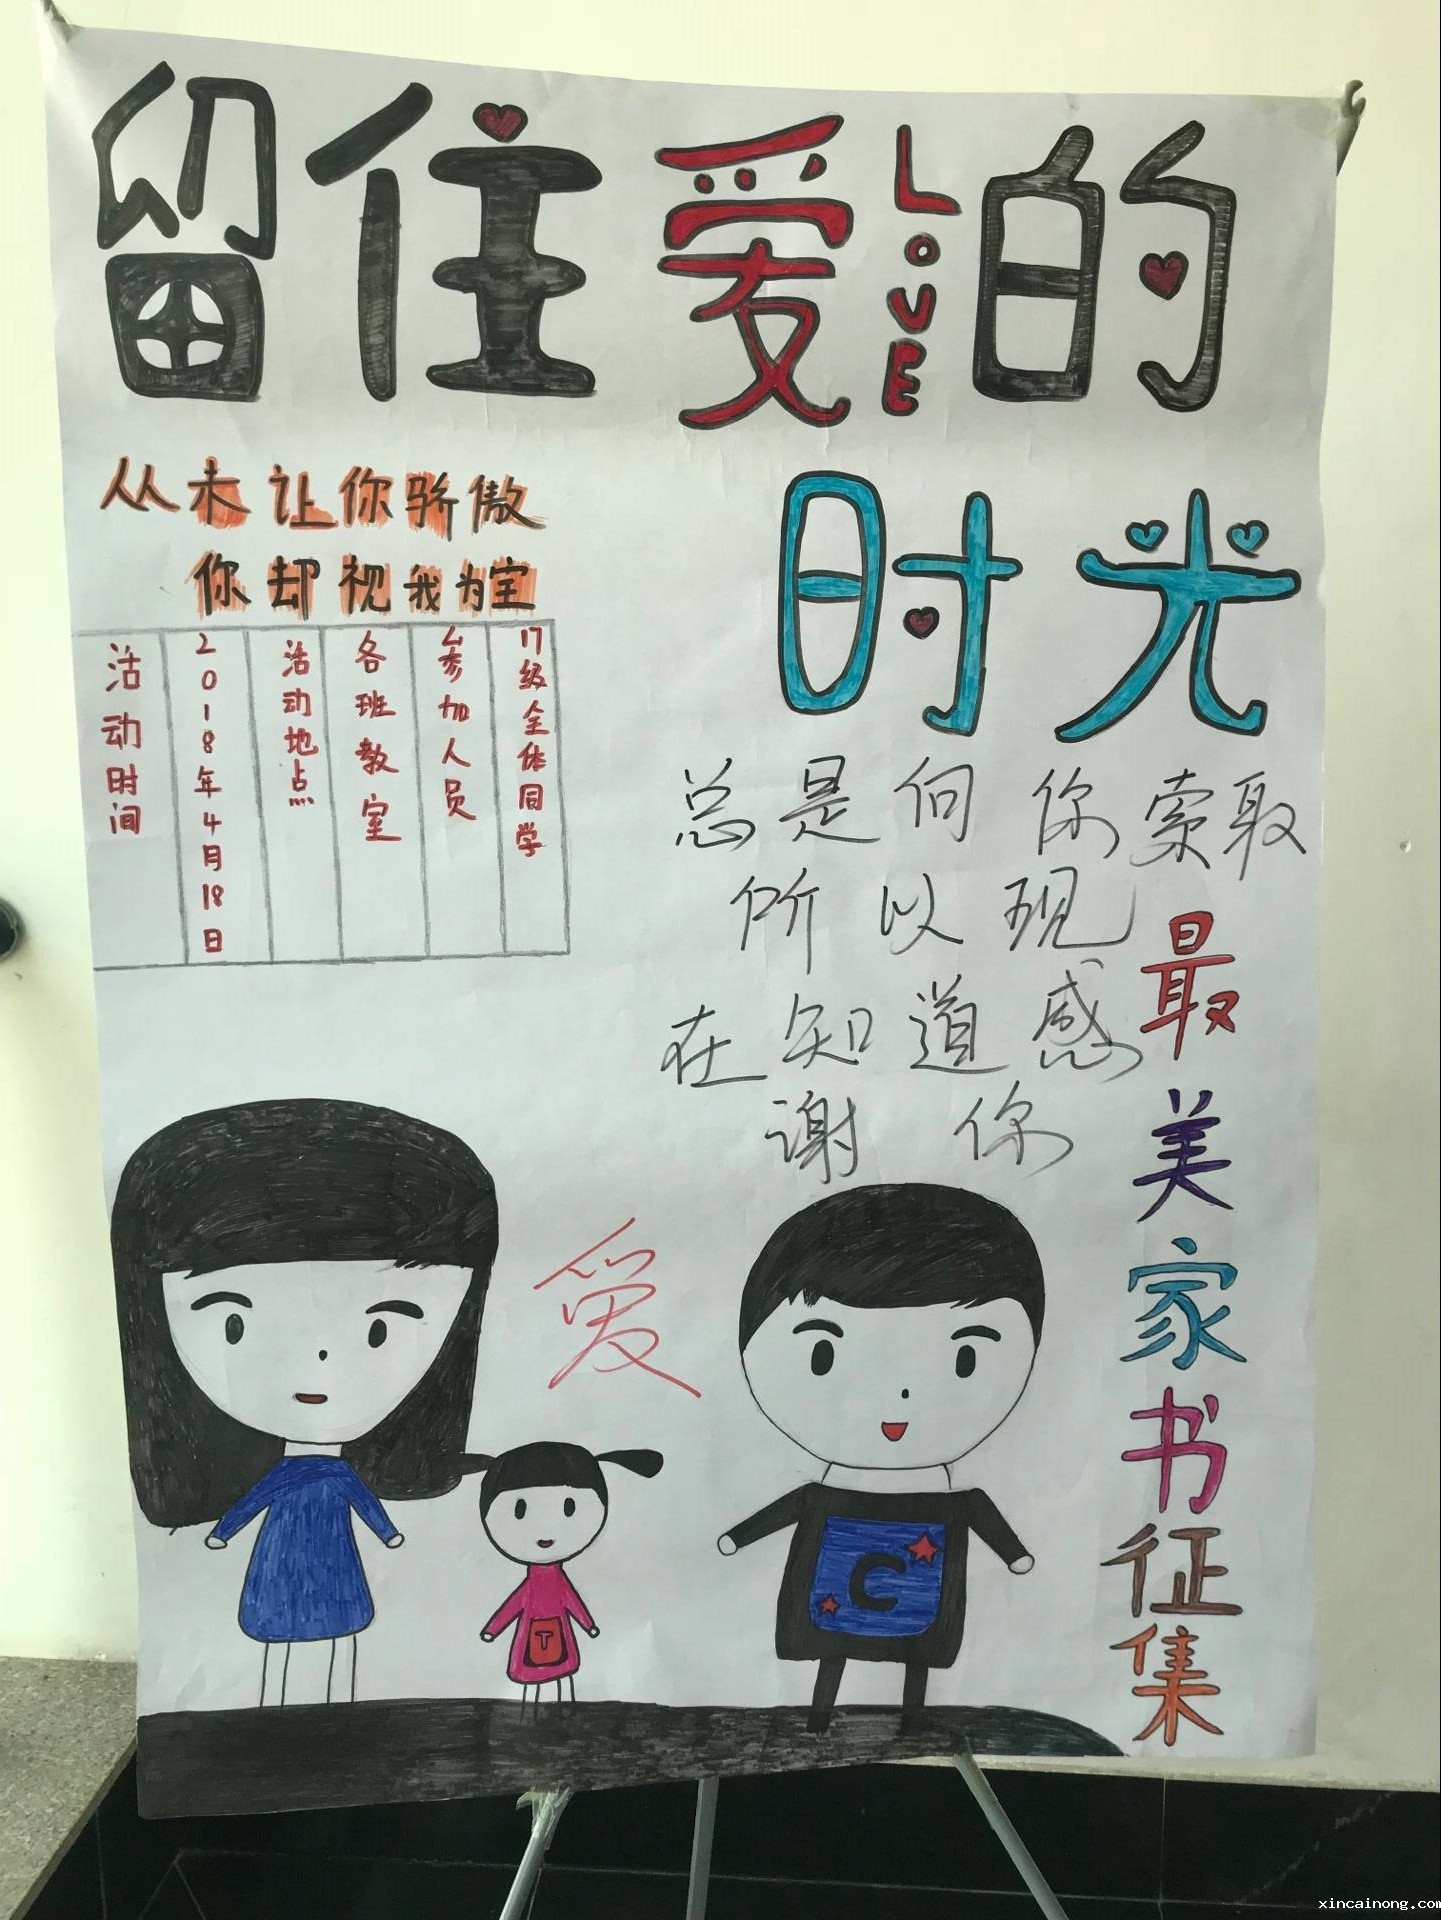 留住爱的
LOVE
时光
从未让你骄傲
你却视我为宝
活动时间
2018年4月18日
活动地点
各班教室
参加人员
17级全体同学
总是向你索取
所以现
在知道感
谢你
最美家书征集
爱
T
C
xincainong.com